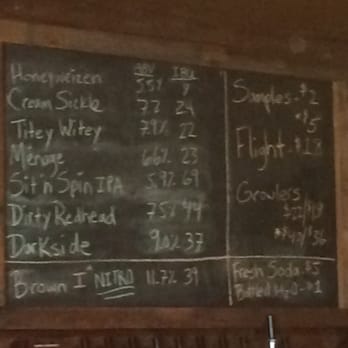 ABV IBU
Honeyweizen 5.5%
Cream Sickle 7.2 24
Titey Witey 7.9% 22
Ménage 6.6% 23
Sit'n Spin IPA 5.9% 69
Dirty Redhead 7.5% 44
Darkside 9.0% 37
Brown I NITRO 11.7% 39
Samples - $2
$5
Flight - $18
Growlers
Fresh Soda $5
Bottled H2O - $1